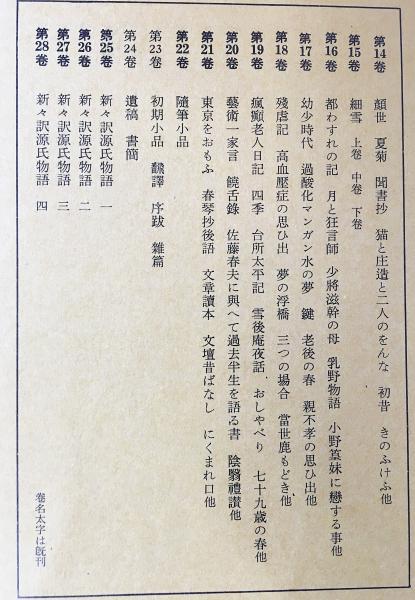 第14卷 顏世 夏菊 聞書抄 猫と庄造と二人のをんな 初昔 きのふけふ他
第15卷 細雪 上卷 中卷 下卷
第16卷 都わすれの記 月と狂言師 少將滋幹の母 乳野物語 小野篁妹に戀する事他
第17卷 幼少時代 過酸化マンガン水の夢 鍵 老後の春 親不孝の思ひ出他
第18卷 殘虐記 高血壓症の思ひ出 夢の浮橋 三つの場合 當世鹿もどき他
第19卷 瘋癲老人日記 四季 台所太平記 雪後庵夜話 おしやべり 七十九歳の春他
第20卷 藝術一家言 饒舌錄 佐藤春夫に與へて過去半生を語る書 陰翳禮讃他
第21卷 東京をおもふ 春琴抄後語 文章讀本 文壇昔ばなし にくまれ口他
第22卷 隨筆小品
第23卷 初期小品 飜譯 序跋 雜篇
第24卷 遺稿 書簡
第25卷 新々訳源氏物語 一
第26卷 新々訳源氏物語 二
第27卷 新々訳源氏物語 三
第28卷 新々訳源氏物語 四
卷名太字は既刊